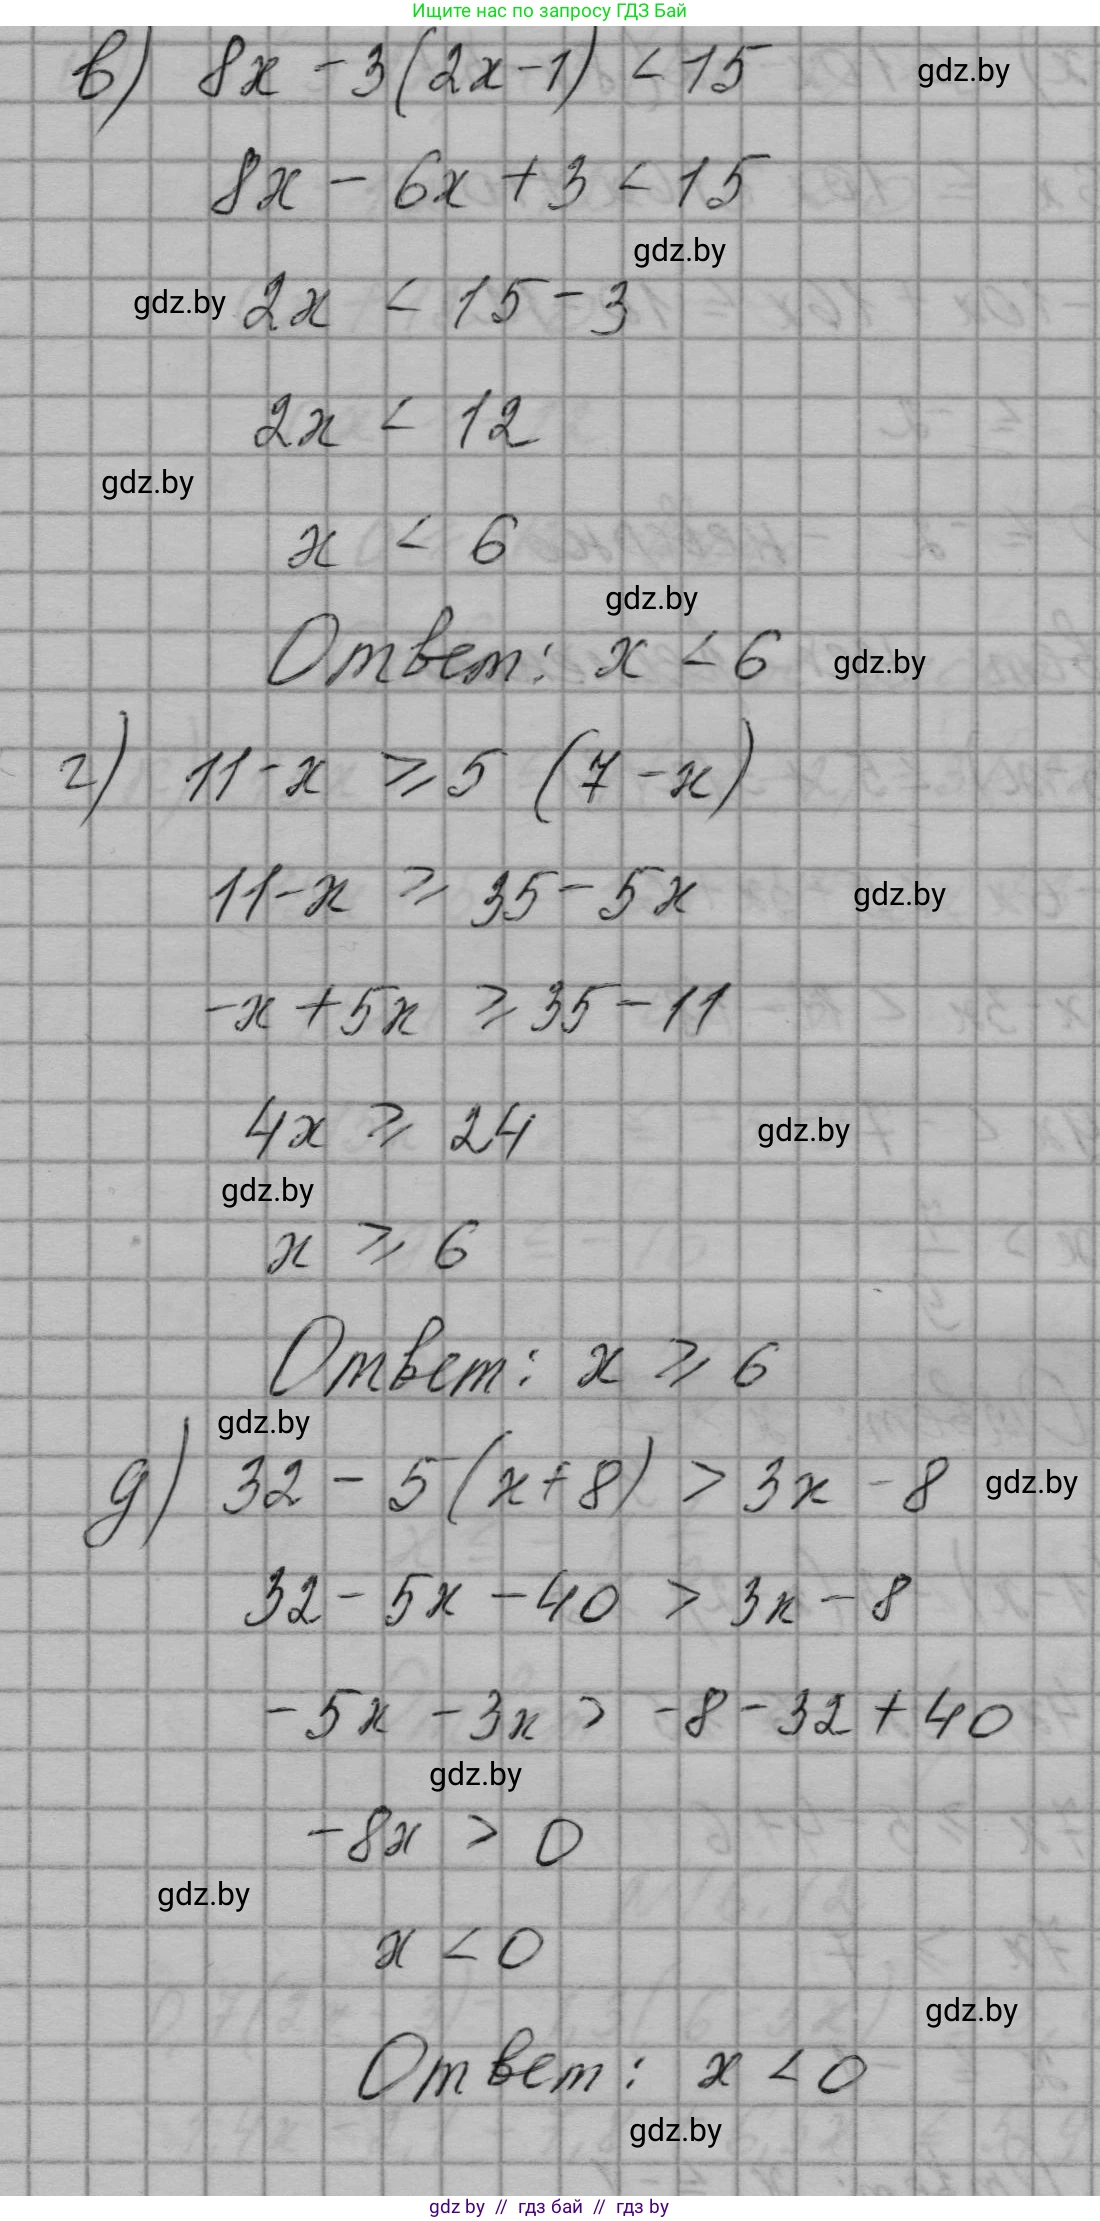 Ищите нас по запросу ГДЗ Бай
в) 8x - 3(2x-1) < 15
gdz.by
8x - 6x + 3 < 15
gdz.by
gdz.by
2x < 15 - 3
2x < 12
gdz.by
x < 6
gdz.by
Ответ: x < 6
gdz.by
г) 11-x ⩾ 5 (7-x)
11-x ⩾ 35-5x
gdz.by
-x+5x ⩾ 35-11
4x ⩾ 24
gdz.by
gdz.by
x ⩾ 6
Ответ: x ⩾ 6
gdz.by
д) 32 - 5(x+8) > 3x - 8
gdz.by
32 - 5x - 40 > 3x - 8
-5x - 3x > -8-32+40
gdz.by
-8x > 0
gdz.by
x < 0
gdz.by
Ответ: x < 0
gdz.by
gdz by // гдз бай // гдз by